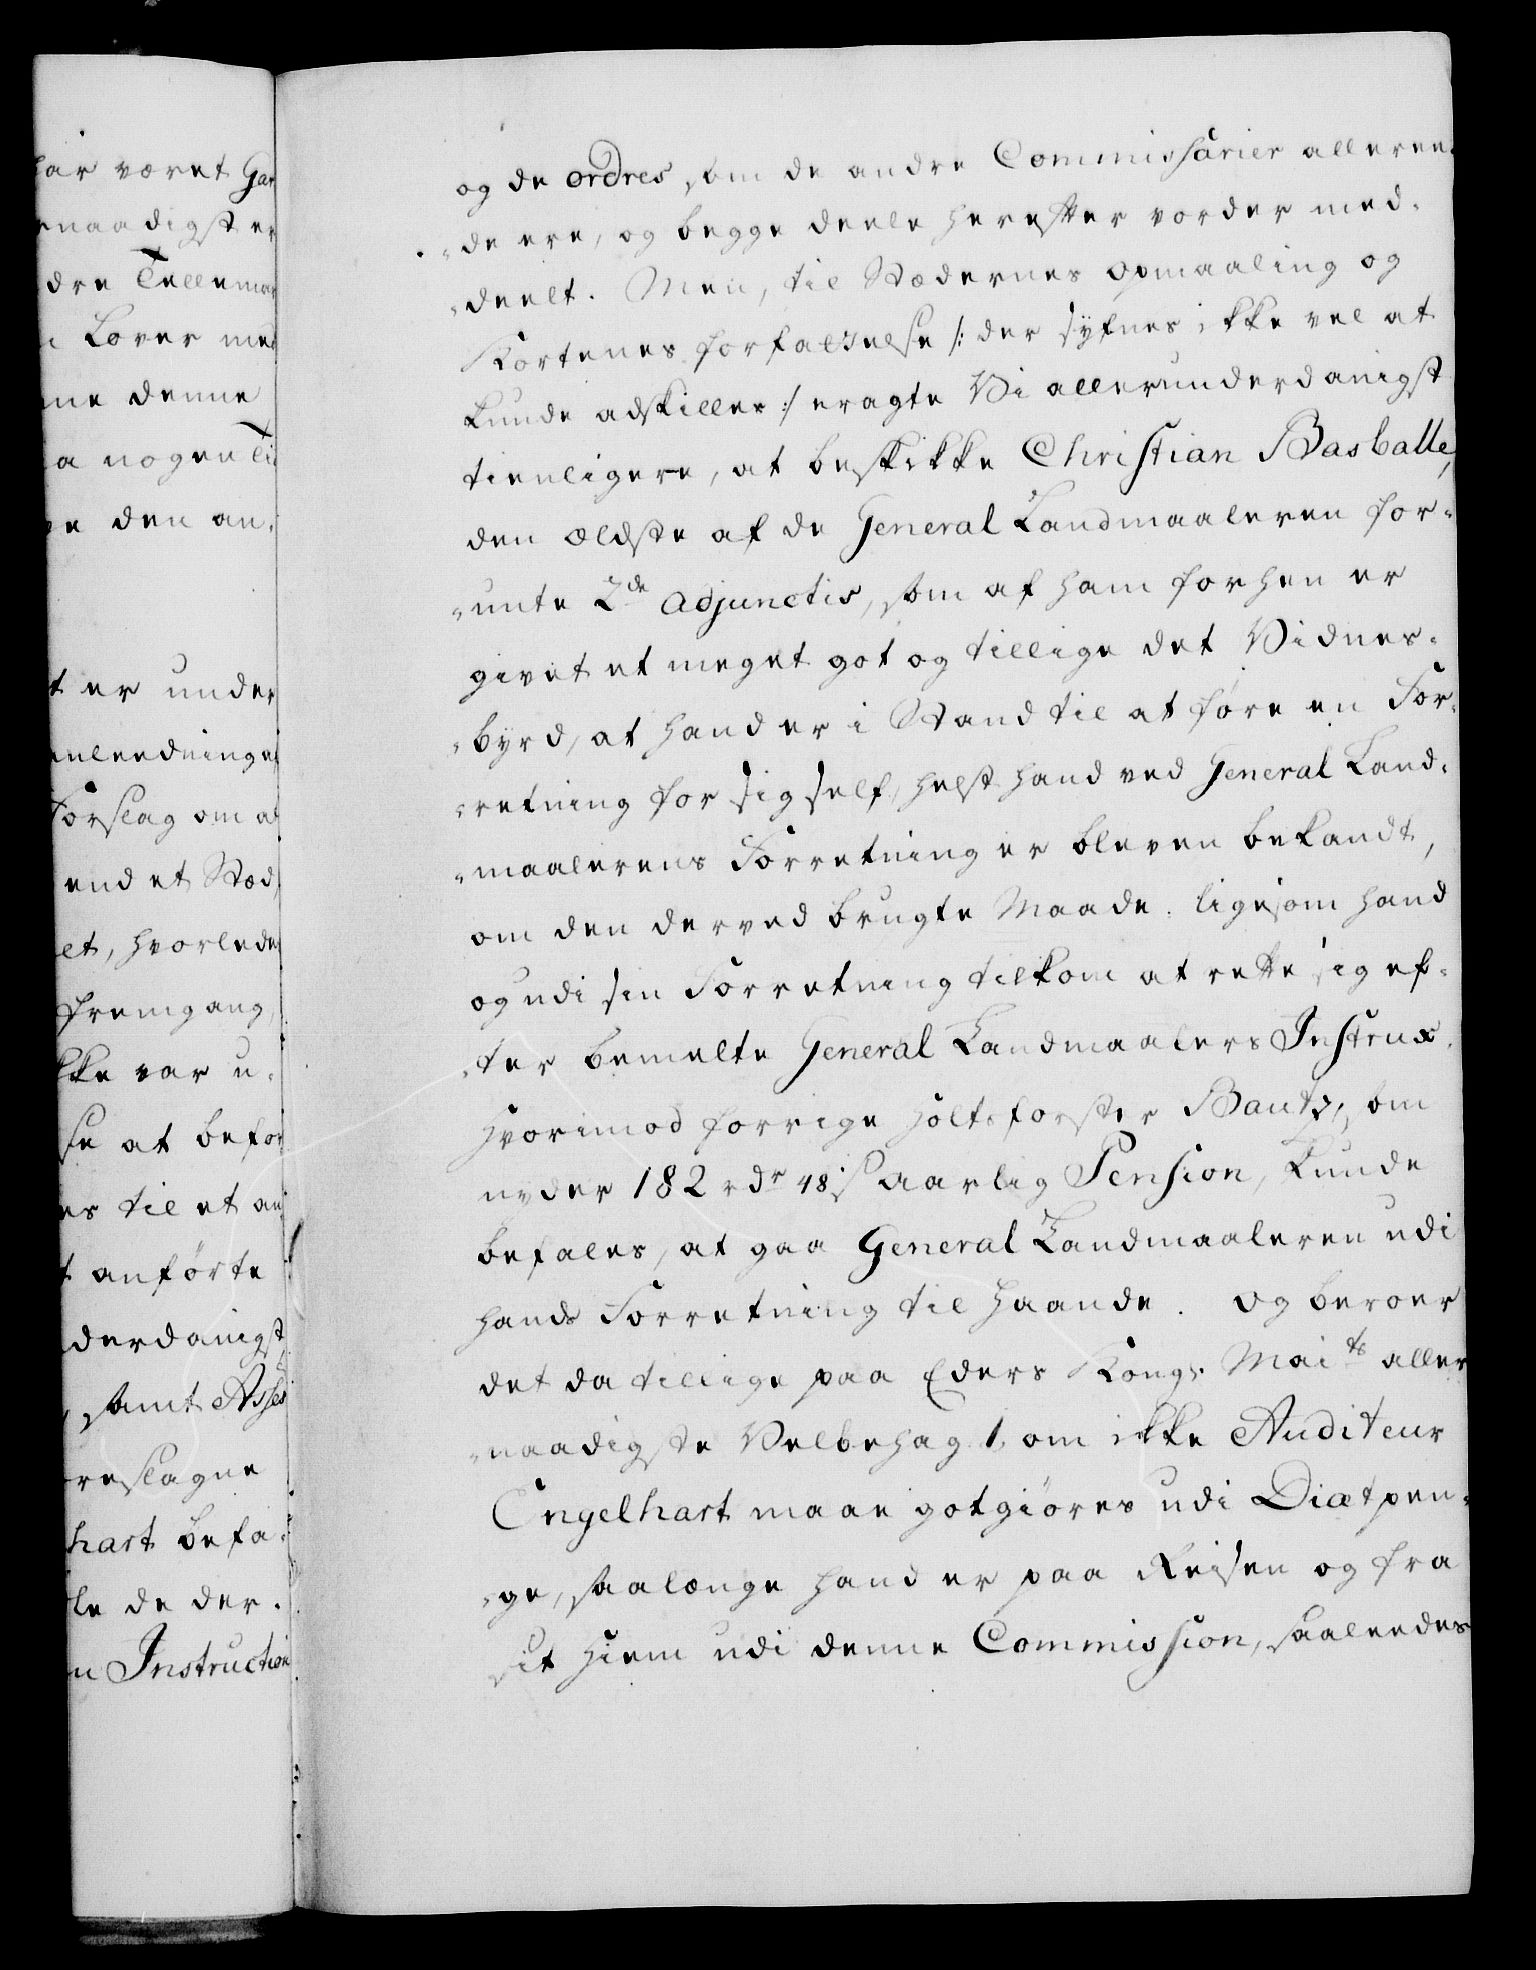 har været Gar
rnaadigst er
dre Tellemar
i Lover med
me denne
a nogen Ti
ve den an-
t er under
anleedninge
Forslag om at
end et Stæd,
et, hvorledes
fremgang,
kke var u-
se at befor
es til et an
t anførte
derdanigst,
, samt Asses
reslagne
hart befa-
le de der-
n Instruction
og de ordres, som de andre Commissarier alleree-
-de ere, og begge deele herefter vorder med-
-deelt. Men, til Stædernes opmaaling og
Kortenes forfattelse /: der synes ikke vel at
kunde adskilles :/ eragte Vi allerunderdanigst
tienligere, at beskikke Christian Basballe,
den ældste af de General Landmaaleren for-
-unte 2de adjunctis, som af ham forhen er
givet et meget got og tillige det Vidnes-
-byrd, at hand er i Stand til at føre en For-
-retning for sig self, helst hand ved General Land-
-maalerens Forretning er bleven bekandt,
om den derved brugte Maade. ligesom hand
og udi sin Forretning tilkom at rette sig ef-
-ter bemelte General Landmaalers Instrux.
Hvorimod forrige Holtsforster Bautz, som
nyder 182 rdr 48 s aarlig Pension, kunde
befales, at gaa General Landmaaleren udi
hands Forretning til haande. Og beroer
det da tillige paa Eders Kongl. Maits aller
-naadigste Velbehag, om ikke Auditeur
Engelhart maae godtgiøres udi Diætpen-
-ge, saalænge hand er paa Reisen og fra
sit Hiem udi denne Commission, saaleedes